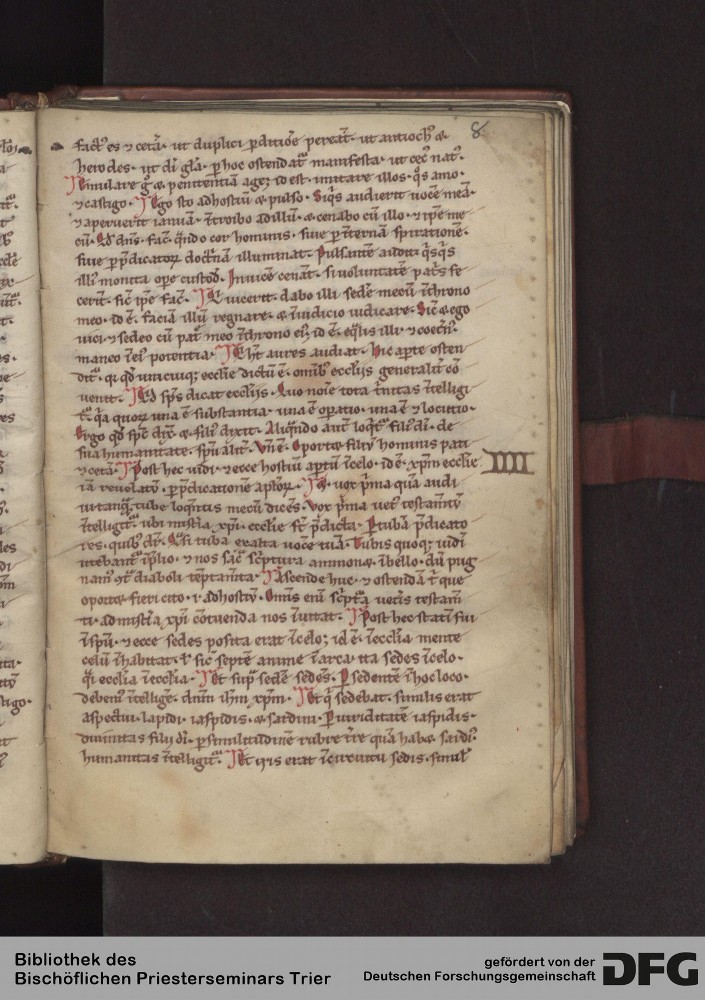 8
factꝰ es ⁊ cetã. ut duplici ꝑditiõe pereat̃. ut antiochꝰ &
herodes. ut di gl̃a. ꝑ hoc ostendat̃ manifesta. ut cec̃ natꝰ.
penitentiã age; id est. imitare illos. q̃s amo.
⁊ castigo. Ego sto ad hostiũ & pulso. Siq̃s audierit uocẽ meã.
⁊ aperuerit ianuã. ĩtroibo ad illũ. & cenabo cũ illo. ⁊ ipse me
cũ. fac̃. q̃ndo cor hominis. siue ꝑ ĩternã spirationẽ.
siue ꝑ p̃dicatoꝝ doctrĩnã illuminat. Pulsantẽ audit. q̃sq̃s
illiꝰ monita ope custod̃. Inuicẽ cenãt. si uoluntatẽ pat̃s fe
cerit. sic̃ ipse fac̃. uicerit. dabo illi sedẽ mecũ ĩ throno
meo. id ẽ. faciã illũ regnare. & ĩ iudicio iudicare. Sic̃ & ego
uici ⁊ sedeo cũ pat̃ meo ĩ throno eiꝰ. id ẽ. eq̃lis illi ⁊ coet̃nꝰ.
maneo ĩ eiꝰ potentia. aures audiat. Hic aꝑte osten
dit̃. qi qd̃ unicuiq; ecclie dictũ ẽ. omĩbꝰ ecclijs generalit̃ cõ
uenit. sp̃s dicat ecclijs. Quo noĩe tota t̃nitas ĩtelligi
t̃. q̃a quoꝝ una ẽ substantia. una ẽ oꝑatio. una ẽ ⁊ locutio.
Ergo qd̃ sp̃c dix̃. & filiꝰ dixit. Aliq̃ndo aut̃ loq̃t̃ filiꝰ di. de
sua humanitate. sp̃ualit̃. Vñ ẽ. Oportet filiũ hominis pati
⁊ cetã. Post hec uidi. ⁊ ecce hostiũ apt̃ũ ĩ celo. id ẽ. xp̃m ecclie IIII
iã reuelatũ. ꝑ p̃dicationẽ apl̃oꝝ. uox p̃ma quã audi
ui tanq̃ tube loq̃ntis mecũ dicẽs. Vox p̃ma uetꝰ testam̃tũ
ĩtelligit̃. ubi mist̃ia xp̃i. ecclie s̃t p̃dicta. Per tubã p̃dicato
res. quibꝰ d̃r. Q̃si tuba exalta uocẽ tuã. Tubis quoq; iudei
utebant̃ ĩ p̃lio. ⁊ nos sac̃ sc̃ptura ammonet. ĩ bello. dũ pug
namꝰ diaboli tẽptam̃ta. Ascende huc. ⁊ ostendã t̃ que
oportet fieri cito. ad hostiũ. Omĩs eni sc̃pt̃a uet̃is testam̃
ti. ad mist̃ia xp̃i cõtuenda nos ĩuitat. Post hec statĩ fui
ĩ sp̃u. ⁊ ecce sedes posita erat ĩ celo; id ẽ. ĩ ecclia mente
celũ ĩhabitat. sic̃ septẽ anime ĩ arca ita sedes ĩ celo.
q̃si ecclia ĩ ecclia. Et sup̃ sedẽ sedẽs. Per sedentẽ ĩ hoc loco.
debemꝰ ĩtelligẽ. dñm ihm̃ xp̃m. Et q̃ sedebat. similis erat
aspectui. lapidi. iaspidis. & sardini. Per uiriditatẽ iaspidis.
diuinitas filij di. ꝑ similitudinẽ rubre t̃re quã habet sardiꝰ.
humanitas ĩtelligit̃. Et yris erat ĩ circuitu sedis. simil̃
Bibliothek des
Bischöflichen Priesterseminars Trier
gefördert von der
Deutschen Forschungsgemeinschaft DFG